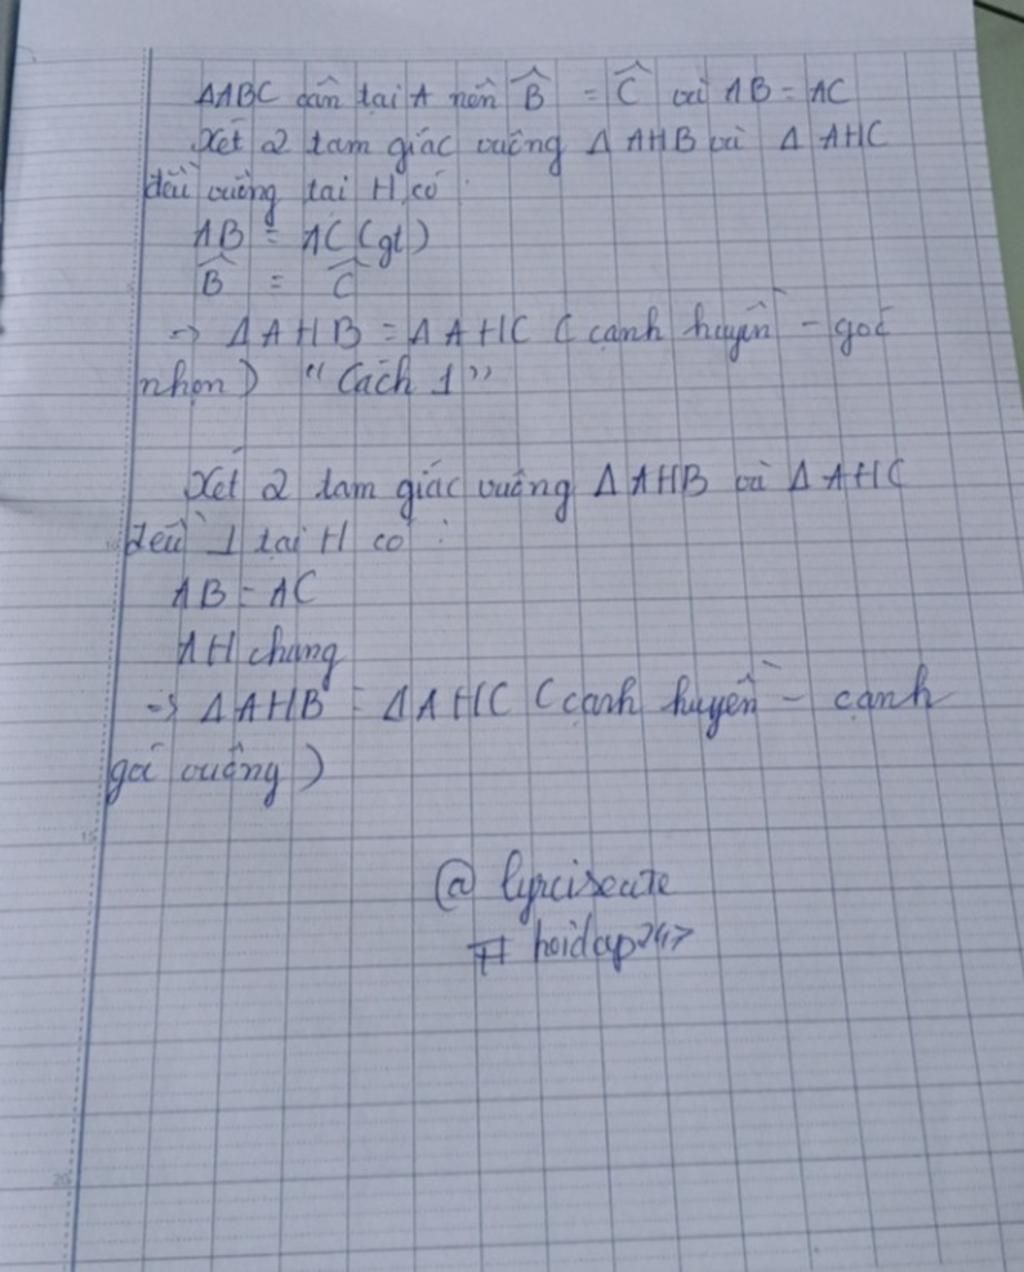 ΔABC cân tại A nên B̂ = Ĉ và AB = AC
Xét 2 tam giác vuông Δ AHB và Δ AHC
đều vuông tại H có :
AB = AC (gt)
B̂ = Ĉ
=> Δ AHB = Δ AHC ( cạnh huyền - góc
nhọn ) "Cách 1"
Xét 2 tam giác vuông Δ AHB và Δ AHC
đều ⊥ tại H có :
AB = AC
AH chung
=> Δ AHB = Δ AHC ( cạnh huyền - cạnh
góc vuông )
@
# hoidap247
15
20